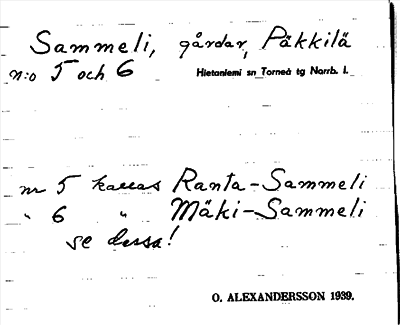 Sammeli, gårdar, Päkkilä
n:o 5 och 6 Hietaniemi sn Torneå tg Norrb. l.
nr 5 kallas Ranta-Sammeli
" 6 " Mäki-Sammeli
se dessa!
O. ALEXANDERSSON 1939.